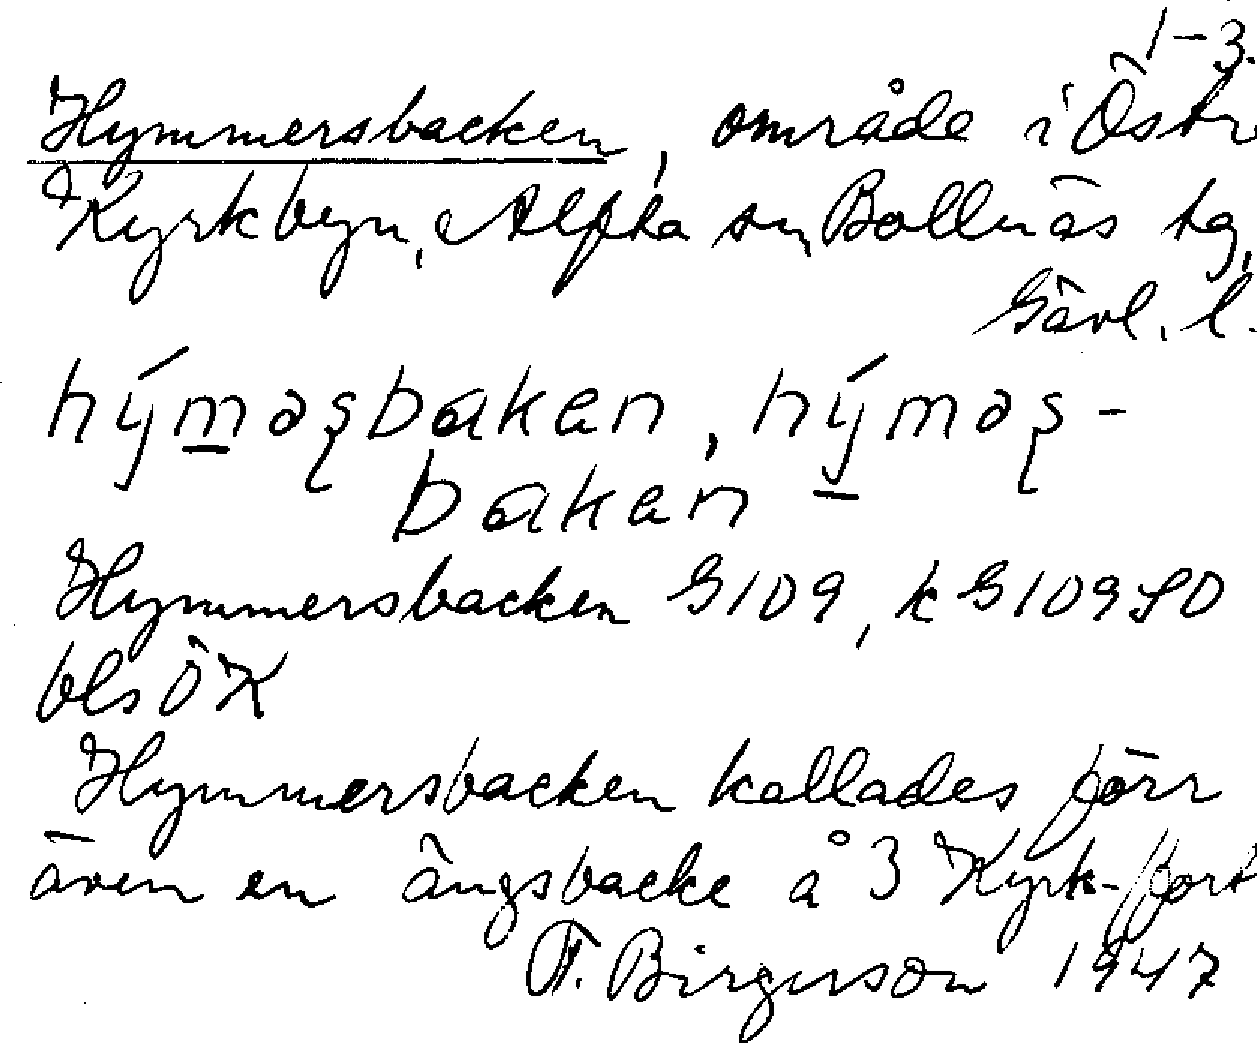 1-3.
Hymmersbacken, område i Östr
Kyrkbyn, Alfta sn, Bollnäs tg,
Gävl. l.
hýməʂbakan, hýməʂ-
bakan
Hymmersbacken G109, k G109 SO
bls ÖK
Hymmersbacken kallades förr
även en ängsbacke å 3 Kyrk-/fort
F. Birgerson 1947